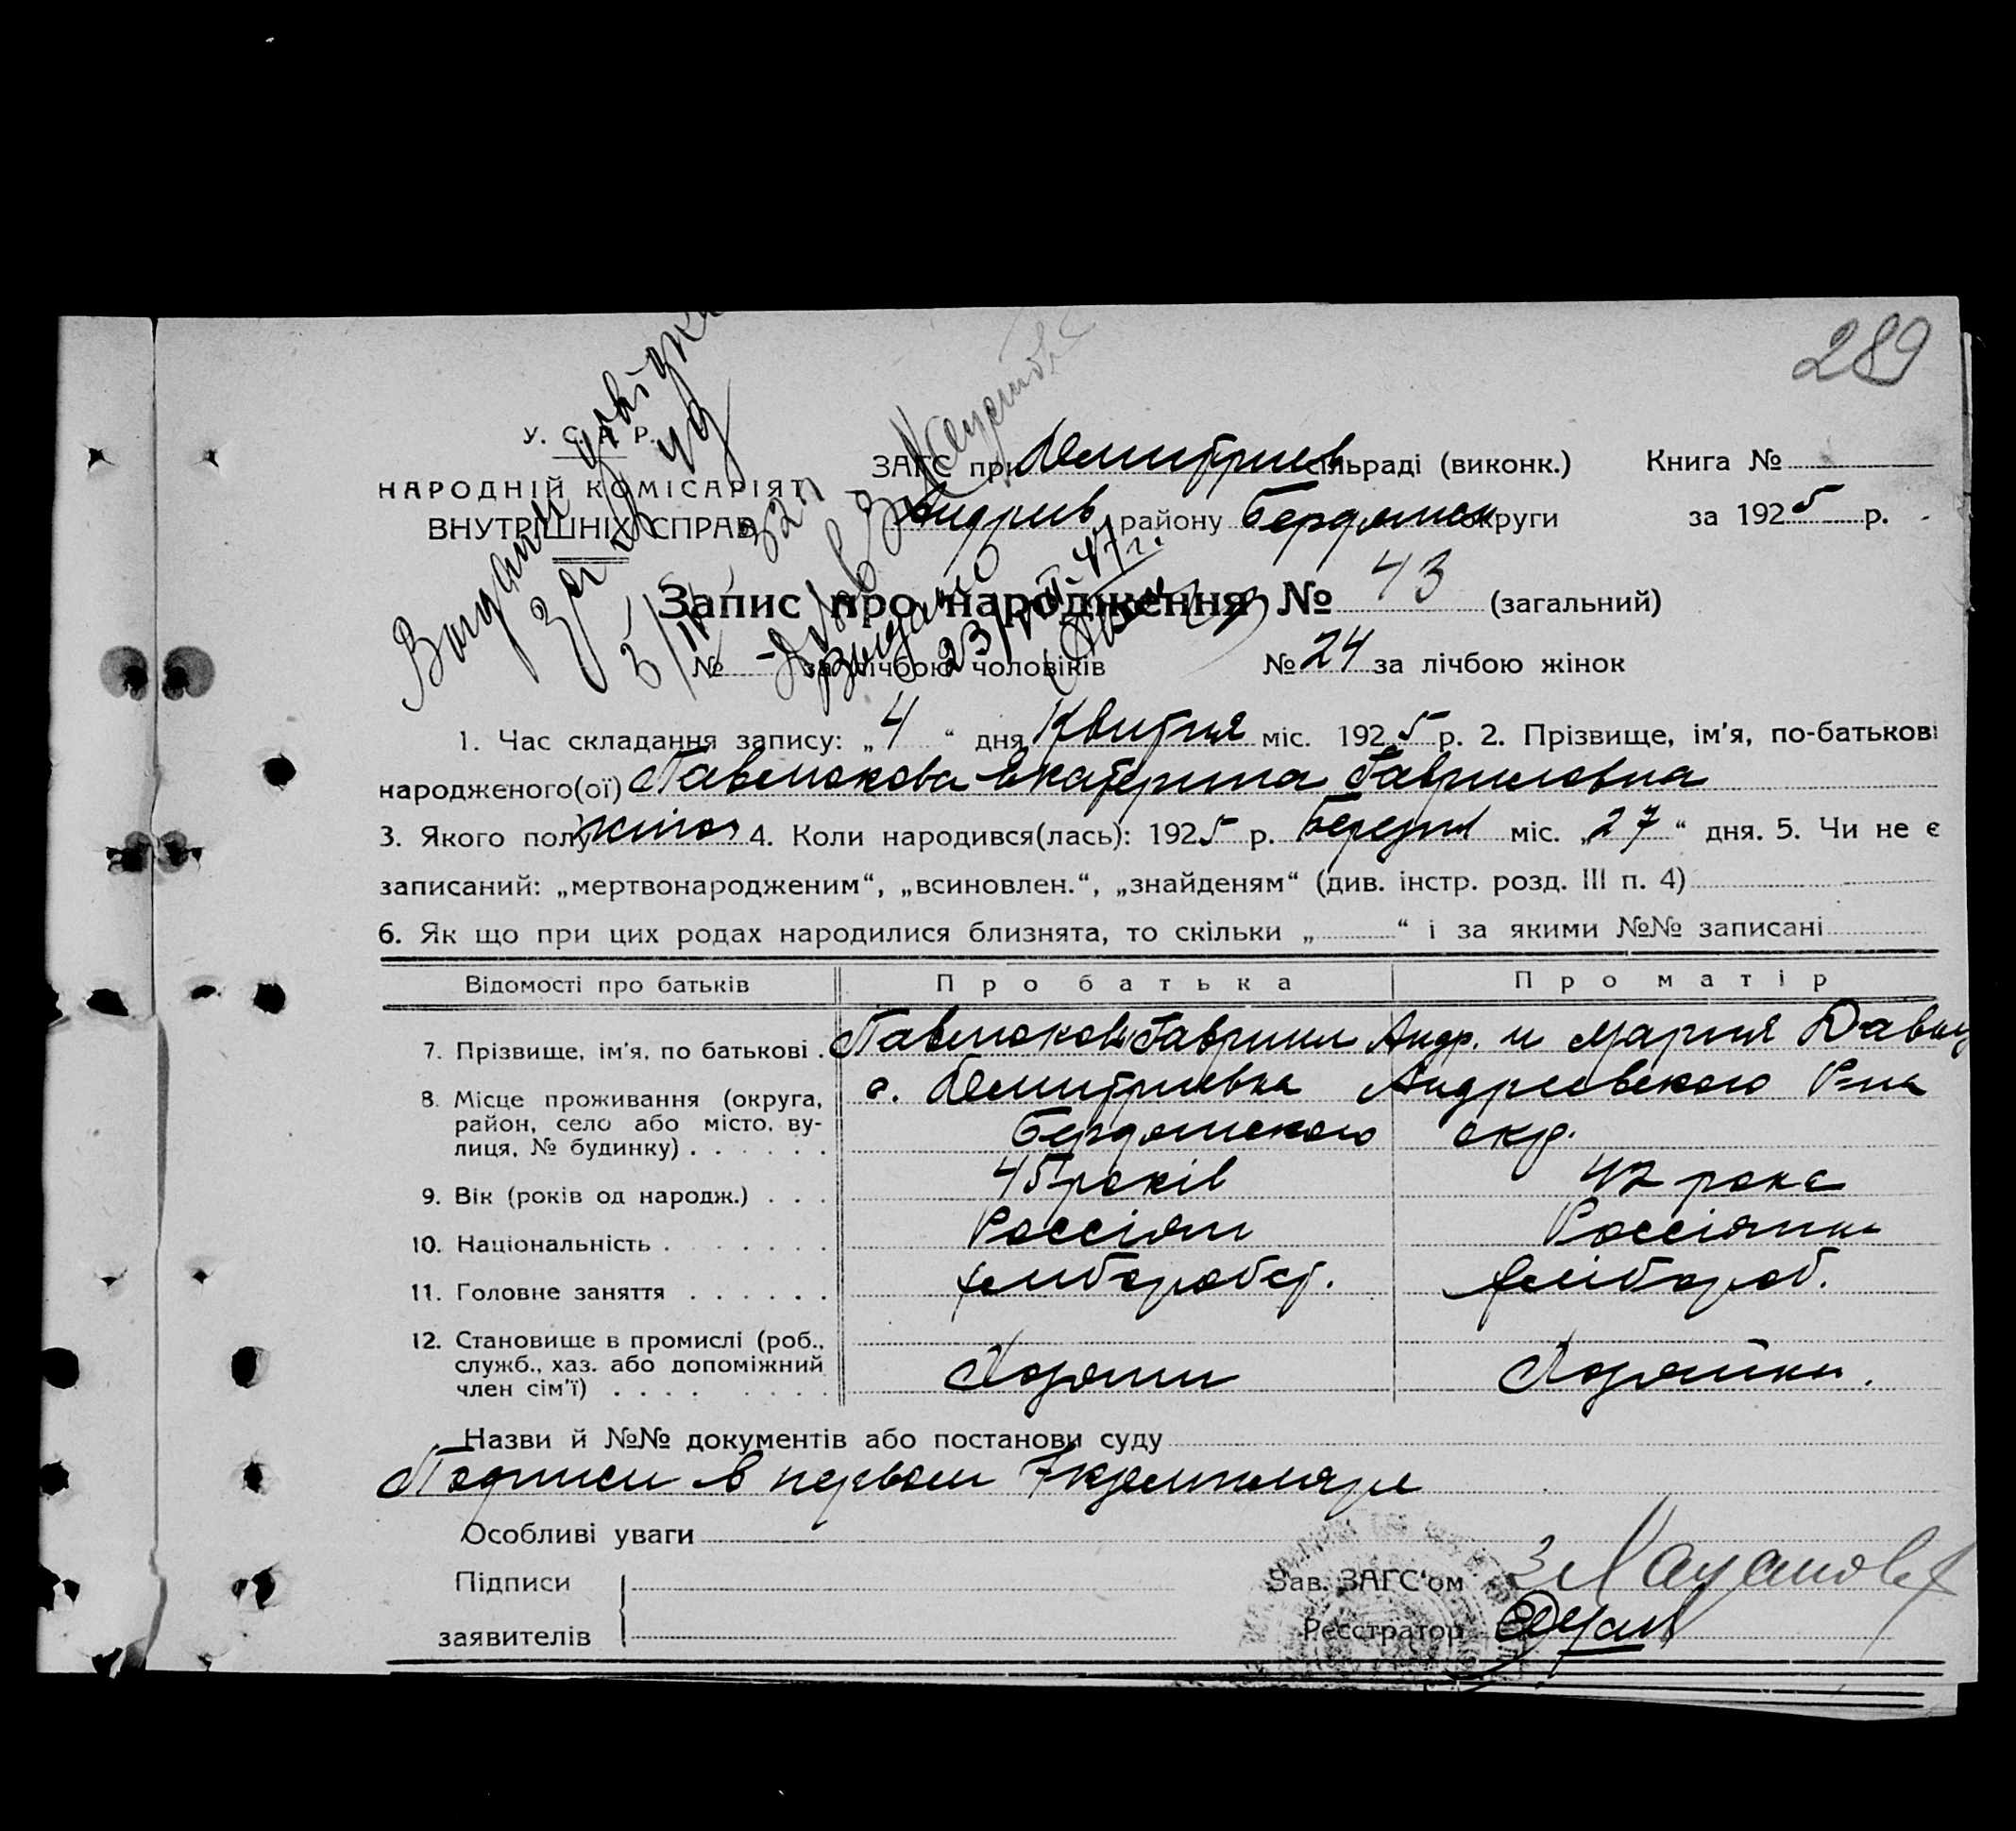 289
У. С. Р. Р.
НАРОДНІЙ КОМІСАРІЯТ
ВНУТРІШНІХ СПРАВ
ЗАГС при Дмитриев сільраді (виконк.) Книга №
Андрив району Бердянск округи за 1925 р.
Запис про народження № 43 (загальний)
№ - за лічбою чоловіків № 24 за лічбою жінок
Видано 23/VII-47 г.
1. Час складання запису: „4“ дня Квитня міс. 1925 р. 2. Прізвище, ім'я, по-батькові
народженого(ої) Павлюкова Екатерина Гавриловна
3. Якого полу жіноч 4. Коли народився(лась): 1925 р. Березня міс. „27“ дня. 5. Чи не є
записаний: „мертвонародженим“, „всиновлен.“, „знайденям“ (див. інстр. розд. III п. 4)
6. Як що при цих родах народилися близнята, то скільки „ “ і за якими №№ записані
Відомості про батьків Про батька Про матір
7. Прізвище, ім'я, по батькові . Павлюковы Гавриил Андр. и Мария Давид
8. Місце проживання (округа, с. Дмитриевка Андриевского Р-на
район, село або місто, ву-
лиця, № будинку) . . . . . . Бердянского окр.
9. Вік (років од народж.) . . . 45 років 42 рока
10. Національність . . . . . . . Россіян Россіянка
11. Головне заняття . . . . . . хлибороб хлибороб.
12. Становище в промислі (роб.,
служб., хаз. або допоміжний
член сім'ї) . . . . . . . . . Хозяин Хозяйка.
Назви й №№ документів або постанови суду
Подписи в первом экземпляре
Особливі уваги
Підписи
заявителів
Зав. ЗАГС'ом
Реєстратор